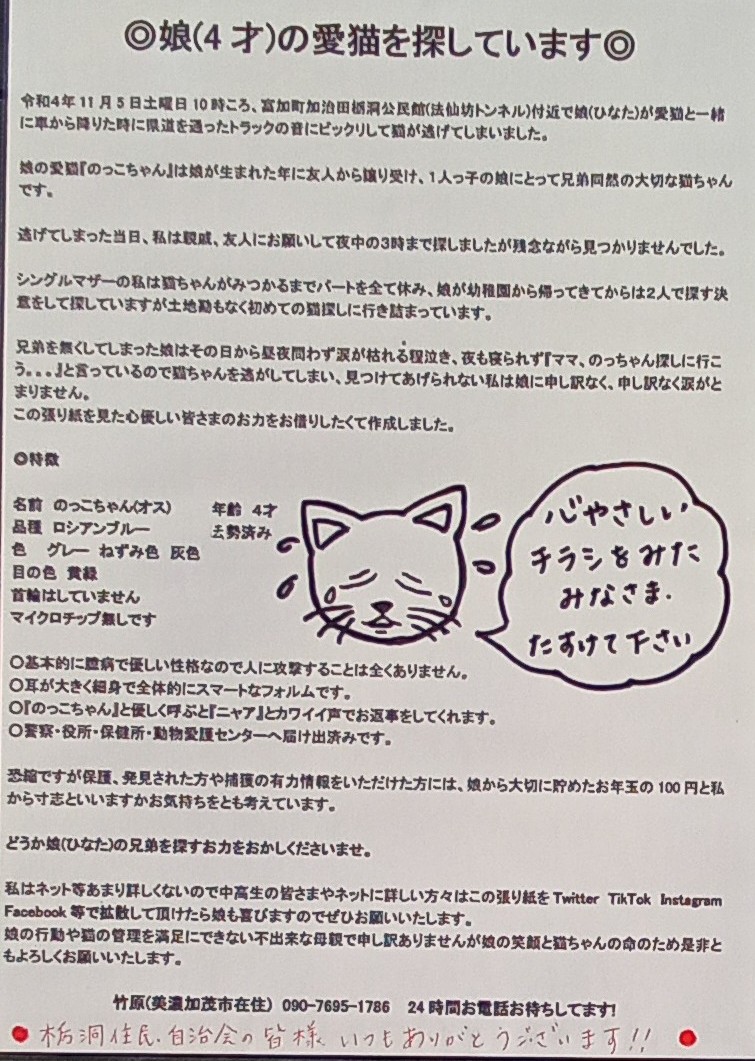 ◎娘(4才)の愛猫を探しています◎
令和4年11月5日土曜日10時ころ、富加町加治田栃洞公民館(法仙坊トンネル)付近で娘(ひなた)が愛猫と一緒
に車から降りた時に県道を通ったトラックの音にビックリして猫が逃げてしまいました。
娘の愛猫『のっこちゃん』は娘が生まれた年に友人から譲り受け、1人っ子の娘にとって兄弟同然の大切な猫ちゃん
です。
逃げてしまった当日、私は親戚、友人にお願いして夜中の3時まで探しましたが残念ながら見つかりませんでした。
シングルマザーの私は猫ちゃんがみつかるまでパートを全て休み、娘が幼稚園から帰ってきてからは2人で探す決
意をして探していますが土地勘もなく初めての猫探しに行き詰まっています。
兄弟を無くしてしまった娘はその日から昼夜問わず涙が枯れる程泣き、夜も寝られず『ママ、のっちゃん探しに行こ
う。。。』と言っているので猫ちゃんを逃がしてしまい、見つけてあげられない私は娘に申し訳なく、申し訳なく涙がと
まりません。
この張り紙を見た心優しい皆さまのお力をお借りしたくて作成しました。
◎特徴
名前 のっこちゃん(オス) 年齢 4才
品種 ロシアンブルー 去勢済み
色 グレー ねずみ色 灰色
目の色 黄緑
首輪はしていません
マイクロチップ無しです
心やさしい
チラシをみた
みなさま.
たすけて下さい
○基本的に臆病で優しい性格なので人に攻撃することは全くありません。
○耳が大きく細身で全体的にスマートなフォルムです。
○『のっこちゃん』と優しく呼ぶと『ニャア』とカワイイ声でお返事をしてくれます。
○警察・役所・保健所・動物愛護センターへ届け出済みです。
恐縮ですが保護、発見された方や捕獲の有力情報をいただけた方には、娘から大切に貯めたお年玉の100円と私
から寸志といいますかお気持ちをとも考えています。
どうか娘(ひなた)の兄弟を探すお力をおかしくださいませ。
私はネット等あまり詳しくないので中高生の皆さまやネットに詳しい方々はこの張り紙をTwitter TikTok Instagram
Facebook等で拡散して頂けたら娘も喜びますのでぜひお願いいたします。
娘の行動や猫の管理を満足にできない不出来な母親で申し訳ありませんが娘の笑顔と猫ちゃんの命のため是非と
もよろしくお願いいたします。
竹原(美濃加茂市在住) 090-7695-1786 24時間お電話お待ちしてます!
● 栃洞住民.自治会の皆様 いつもありがとうございます!! ●